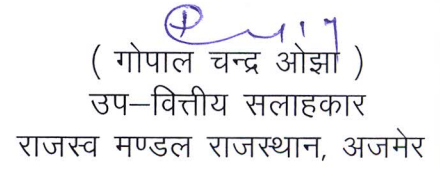 ( गोपाल चन्द्र ओझा )
उप–वित्तीय सलाहकार
राजस्व मण्डल राजस्थान, अजमेर